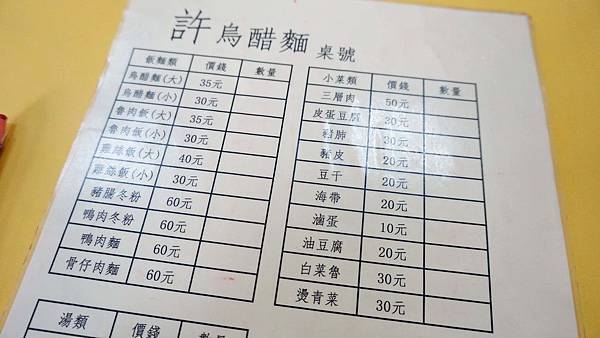 許烏醋麵 桌號
飯麵類 價錢 數量
烏醋麵(大) 35元
烏醋麵(小) 30元
魯肉飯(大) 35元
魯肉飯(小) 30元
雞絲飯(大) 40元
雞絲飯(小) 30元
豬腸冬粉 60元
鴨肉冬粉 60元
鴨肉麵 60元
骨仔肉麵 60元
小菜類 價錢 數量
三層肉 50元
皮蛋豆腐 30元
豬肺 30元
豬皮 20元
豆干 20元
海帶 20元
滷蛋 10元
油豆腐 20元
白菜魯 30元
燙青菜 30元
湯類 價錢 數量